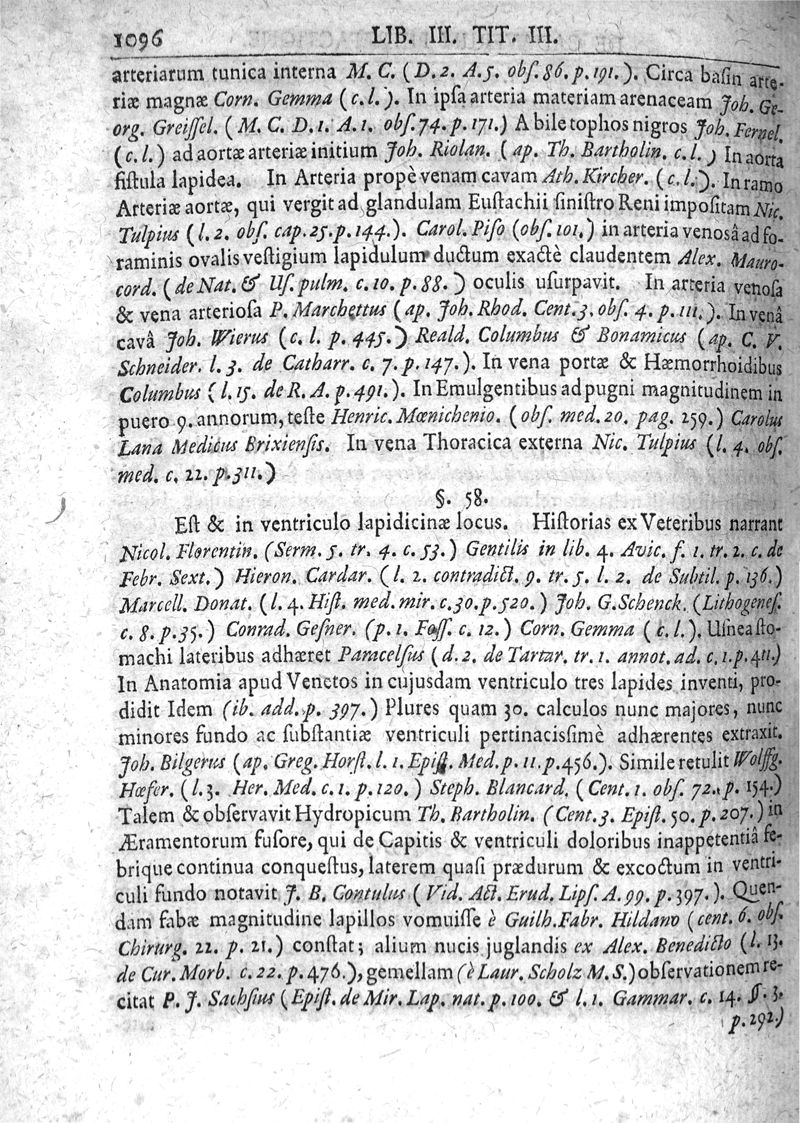 1096 LIB. III. TIT. III.
arteriarum tunica interna M. C. (D. 2. A. 5. obſ. 86. p. 191.). Circa baſin arte-
riæ magnæ Corn. Gemma (c. l.). In ipſa arteria materiam arenaceam Joh. Ge-
org. Greiſſel. (M. C. D. 1. A. 1. obſ. 74. p. 171.) A bile tophos nigros Joh. Fernel.
(c. l.) ad aortæ arteriæ initium Joh. Riolan. (ap. Th. Bartholin. c. l.) In aorta
fiſtula lapidea. In Arteria propè venam cavam Ath. Kircher. (c. l.). In ramo
Arteriæ aortæ, qui vergit ad glandulam Euſtachii ſiniſtro Reni impoſitam Nic.
Tulpius (l. 2. obſ. cap. 25. p. 144.). Carol. Piſo (obſ. 101.) in arteria venosâ ad fo-
raminis ovalis veſtigium lapidulum ductum exactè claudentem Alex. Mauro-
cord. (de Nat. & Uſ. pulm. c. 10. p. 88.) oculis uſurpavit. In arteria venoſa
& vena arterioſa P. Marchettus (ap. Joh. Rhod. Cent. 3. obſ. 4. p. 111.). In venâ
cavâ Joh. Wierus (c. l. p. 445.) Reald. Columbus & Bonamicus (ap. C. V.
Schneider. l. 3. de Catharr. c. 7. p. 147.). In vena portæ & Hæmorrhoidibus
Columbus (l. 15. de R. A. p. 491.). In Emulgentibus ad pugni magnitudinem in
puero 9. annorum, teſte Henric. Mœnichenio. (obſ. med. 20. pag. 259.) Carolus
Lana Medicus Brixienſis. In vena Thoracica externa Nic. Tulpius (l. 4. obſ.
med. c. 22. p. 311.)
§. 58.
Eſt & in ventriculo lapidicinæ locus. Hiſtorias ex Veteribus narrant
Nicol. Florentin. (Serm. 5. tr. 4. c. 53.) Gentilis in lib. 4. Avic. f. 1. tr. 2. c. de
Febr. Sext.) Hieron. Cardar. (l. 2. contradict. 9. tr. 5. l. 2. de Subtil. p. 136.)
Marcell. Donat. (l. 4. Hiſt. med. mir. c. 30. p. 520.) Joh. G. Schenck. (Lithogeneſ.
c. 8. p. 35.) Conrad. Geſner. (p. 1. Foſſ. c. 12.) Corn. Gemma (c. l.). Uſnea ſto-
machi lateribus adhæret Paracelſus (d. 2. de Tartar. tr. 1. annot. ad. c. 1. p. 411.)
In Anatomia apud Venetos in cujusdam ventriculo tres lapides inventi, pro-
didit Idem (ib. add. p. 397.) Plures quam 30. calculos nunc majores, nunc
minores fundo ac ſubſtantiæ ventriculi pertinacisſimè adhærentes extraxit.
Joh. Bilgerus (ap. Greg. Horſt. l. 1. Epiſt. Med. p. 11. p. 456.). Simile retulit Wolffg.
Hœfer. (l. 3. Her. Med. c. 1. p. 120.) Steph. Blancard. (Cent. 1. obſ. 72. p. 154.)
Talem & obſervavit Hydropicum Th. Bartholin. (Cent. 3. Epiſt. 50. p. 207.) in
Æramentorum fuſore, qui de Capitis & ventriculi doloribus inappetentiâ fe-
brique continua conqueſtus, laterem quaſi prædurum & excoctum in ventri-
culi fundo notavit J. B. Contulus (Vid. Act. Erud. Lipſ. A. 99. p. 397.). Quen-
dam fabæ magnitudine lapillos vomuiſſe è Guilh. Fabr. Hildano (cent. 6. obſ.
Chirurg. 22. p. 21.) conſtat; alium nucis juglandis ex Alex. Benedicto (l. 13.
de Cur. Morb. c. 22. p. 476.), gemellam (è Laur. Scholz M. S.) obſervationem re-
citat P. J. Sachſius (Epiſt. de Mir. Lap. nat. p. 100. & l. 1. Gammar. c. 14. §. 3.
p. 292.)